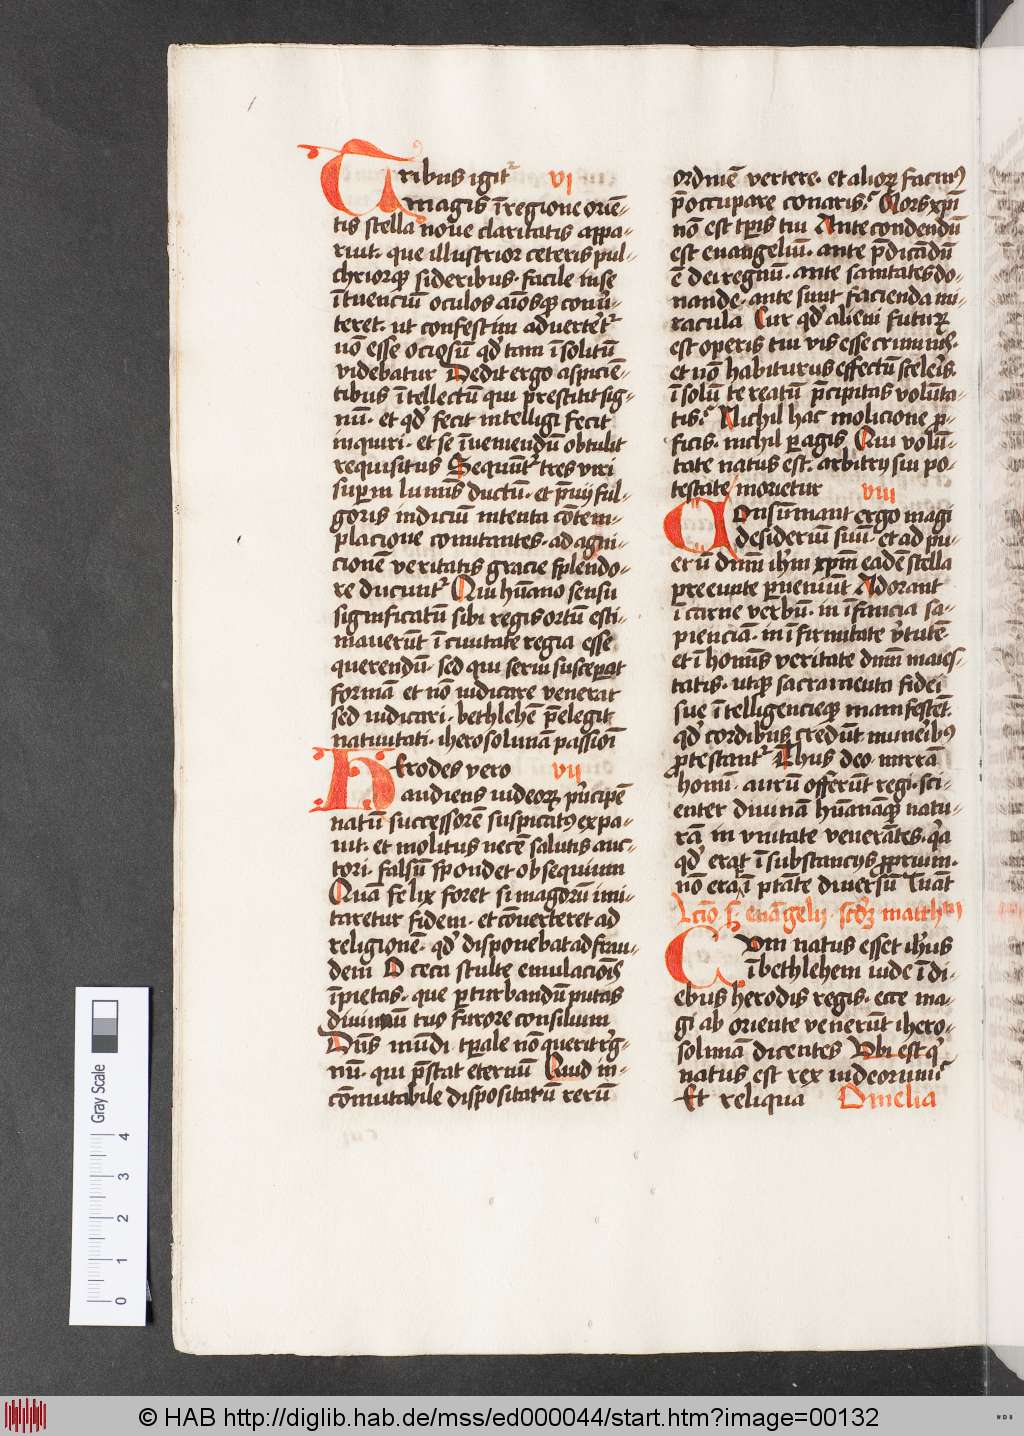 Tribus igit᷑ vi
magis ī regione oriē-
tis stella noue claritatis appa-
ruit· que illustrior ceteris pul-
chriorqꝫ sideribus· facile in se
ītuenciū oculos aīosqꝫ conu̾-
teret· ut confestim aduertet᷑
nō esse ociosū qd̕ tam īsolitū
videbatur Dedit ergo aspiciē-
tibus ītellectū qui prestitit sig-
nū· et qd̕ fecit intelligi fecit
inquiri· et se īueniendū obtulit
requisitus Sequūt᷑ tres viri
superni luminis ductū· et p̄uij ful-
goris indiciū intenta cōtem-
placione comitantes· ad agni-
cionē veritatis gracie splendo-
re ducunt᷑ Qui hūano sensu
significatū sibi regis ortū esti-
mauerūt ī ciuitate regia esse
querendū· sed qui serui susceperat
formā et nō iudicare venerat
sed iudicari· bethleħē p̄elegit
natiuitati· iherosolimā passioī
Herodes vero vii
audiens iudeoꝝ pͥncipē
natū successorē suspicatꝰ expa-
uit· et molitus necē salutis auc-
tori· falsū spondet obsequium
Quā felix foret si magorū imi-
taretur fidem· et cōuerteret ad
religionē· qd̕ disponebat ad frau-
dem O ceca stulte emulacioīs
īpietas· que perturbandū putas
diuinū tuo furore consilium
Dn̄s mūdi tꝑale nō querit rͤg-
nū· qui p̄stat eternū Quid in-
cōmutabile dispositarū rerū
ordinē vertere· et alioꝝ facinꝰ
p̄occupare conaris᷑ Mors xp̄i
nō est tꝑis tui Ante condendū
est euangeliū· ante p̄dicādū
ē dei regnū· ante sanitates do-
nande· ante sunt facienda mi-
racula Cur qd̕ alieni futuꝝ
est operis tui vis esse criminis·
et nō habiturus effectū sceleris
ī solū te reatū p̄cipitas volūta-
tis᷑ Nichil hac molicione ꝓ-
ficis· nichil ꝑagis Qui volū-
tate natus est· arbitrij sui po-
testate morietur viii
Consūmant ergo magi
desideriū suū· et ad pu-
erū dn̄m ihm xp̄m eadē stella
preeunte ꝑueniūt Adorant
ī carne verbū· in īfancia sa-
pienciā· in īfirmitate v̾tutē·
et ī hoīs veritate dn̄m maies-
tatis· utqꝫ sacramenta fidei
sue ītelligencieqꝫ manifestēt·
qd̕ cordibus credūt muneribꝰ
ꝓtestant᷑ Thus deo· mirrā
homī· aurū offerūt regi· sci-
enter diuinā hūanāqꝫ natu-
rā in vnitate venerātes· qͥa
qd̕ erat ī substancijs ꝓprium·
nō erat ī ptāte diuersū Iūant
Lc̄io s̄ euāgelij· scd̕ꝫ mattheū
Cum natus esset ihūs
ī bethlehem iude ī di-
ebus herodis regis· ecce ma-
gi ab oriente venerūt ihero-
solimā dicentes Vbi est qͥ
natus est rex iudeorum᷑
Et reliqua Omelia
Gray Scale
4
3
2
1
0
© HAB http://diglib.hab.de/mss/ed000044/start.htm?image=00132